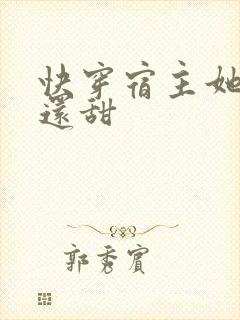 快穿宿主她
還甜
郭秀賓